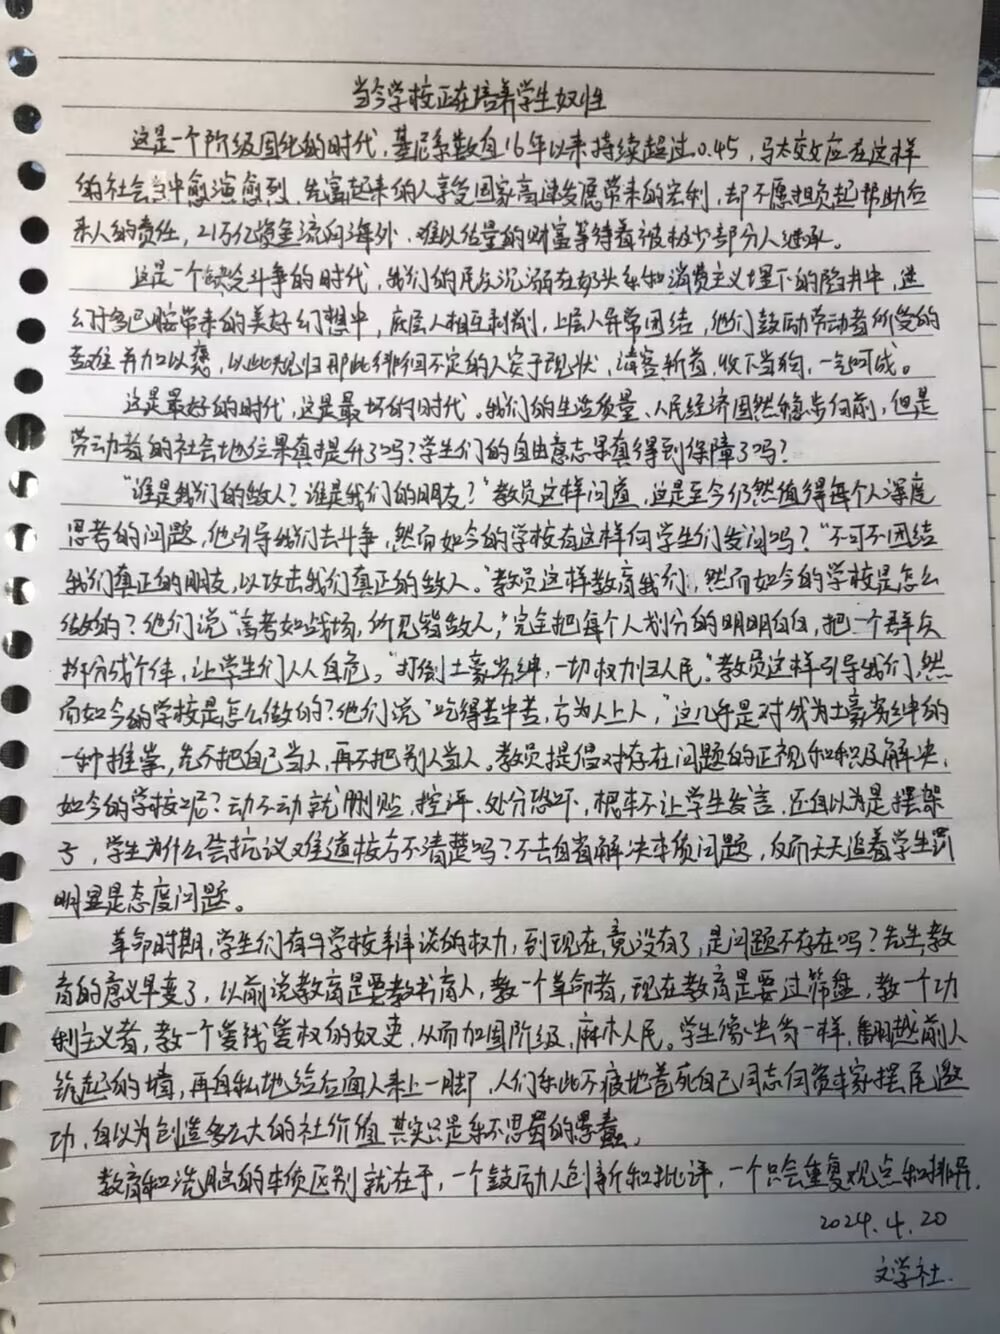 当今学校正在培养学生奴性
这是一个阶级固化的时代,基尼系数自16年以来持续超过0.45,马太效应在这样
的社会当中愈演愈烈,先富起来的人享受国家高速发展带来的宏利,却不愿担负起帮助后
来人的责任,21万亿资金流向海外,难以估量的财富等待着被极少部分人继承。
这是一个缺乏斗争的时代,我们的民众沉溺在奶头乐和消费主义埋下的陷井中,迷
幻于多巴胺带来的美好幻想中,底层人相互剥削,上层人异常团结,他们鼓励劳动者所受的
苦难并加以褒,以此规归那些徘徊不定的人安于现状,请客斩首,收下当狗,一气呵成。
这是最好的时代,这是最坏的时代。我们的生活质量、人民经济固然稳步向前,但是
劳动者的社会地位果真提升了吗?学生们的自由意志果真得到保障了吗?
“谁是我们的敌人?谁是我们的朋友?”教员这样问道,这是至今仍然值得每个人深度
思考的问题,他引导我们去斗争,然而如今的学校有这样向学生们发问吗?“不可不团结
我们真正的朋友,以攻击我们真正的敌人。”教员这样教育我们,然而如今的学校是怎么
做的?他们说“高考如战场,所见皆敌人,”完全把每个人划分的明明白白,把一个群众
拆分成个体,让学生们人人自危。“打倒土豪劣绅,一切权力归人民。”教员这样引导我们,然
而如今的学校是怎么做的?他们说“吃得苦中苦,方为人上人,”这几乎是对成为土豪劣绅的
一种推崇,先不把自己当人,再不把别人当人。教员提倡对存在问题的正视和积极解决,
如今的学校呢?动不动就删贴,控评,处分恐吓,根本不让学生发言,还自以为是摆架
子,学生为什么会抗议难道校方不清楚吗?不去自省解决本质问题,反而天天追着学生罚
明显是态度问题。
革命时期,学生们有与学校争辩谈的权力,到现在竟没有了,是问题不存在吗?先生,教
育的意义早变了,以前说教育是要教书育人,教一个革命者,现在教育是要过筛盘,教一个功
利主义者,教一个爱钱爱权的奴吏,从而加固阶级,麻木人民。学生像虫豸一样,翻越前人
筑起的墙,再自私地给后面人来上一脚,人们乐此不疲地卷死自己同志向资本家摆尾邀
功,自以为创造多么大的社价值,其实只是乐不思蜀的愚蠢。
教育和洗脑的本质区别就在于,一个鼓励人创新和批评,一个只会重复观点和排异.
2024.4.20
文学社.